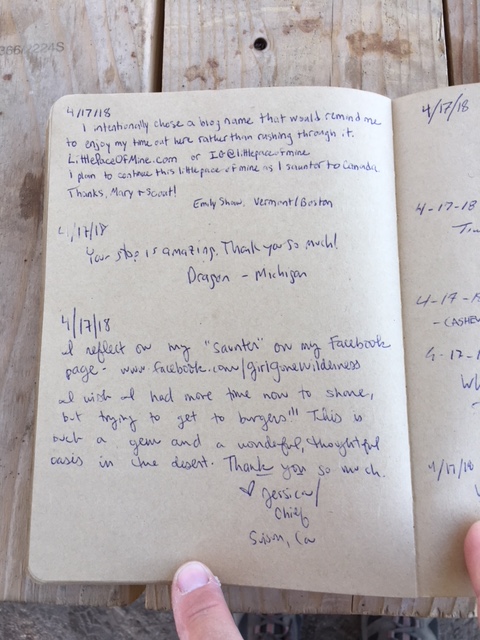 366/224S
4/17/18
I intentionally chose a blog name that would remind me
to enjoy my time out here rather than rushing through it.
LittlePaceOfMine.com or IG@littlepaceofmine
I plan to continue this little pace of mine as I saunter to Canada.
Thanks, Mary + Scout!
Emily Shaw, Vermont/Boston
4/17/18
Your stop is amazing. Thank you so much!
Dragon - Michigan
4/17/18
I reflect on my "saunter" on my Facebook
page - www.facebook.com/girlgonewilderness
I wish I had more time now to share,
but trying to get to burgers!!! This is
such a gem and a wonderful, thoughtful
oasis in the desert. Thank you so much.
♡ Jessica/
Chief
4/17/18
4-17-18
4-17-1
-CASHEW
4/17/18